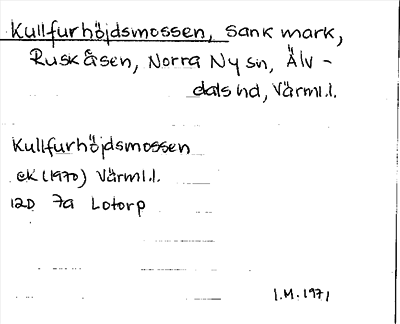 Kullfurhöjdsmossen, sank mark,
Ruskåsen, Norra Ny sn, Älv-
dals hd, Värml.l.
Kullfurhöjdsmossen
eK (1970) Värml.l.
12D 7a Lotorp
I.M. 1971